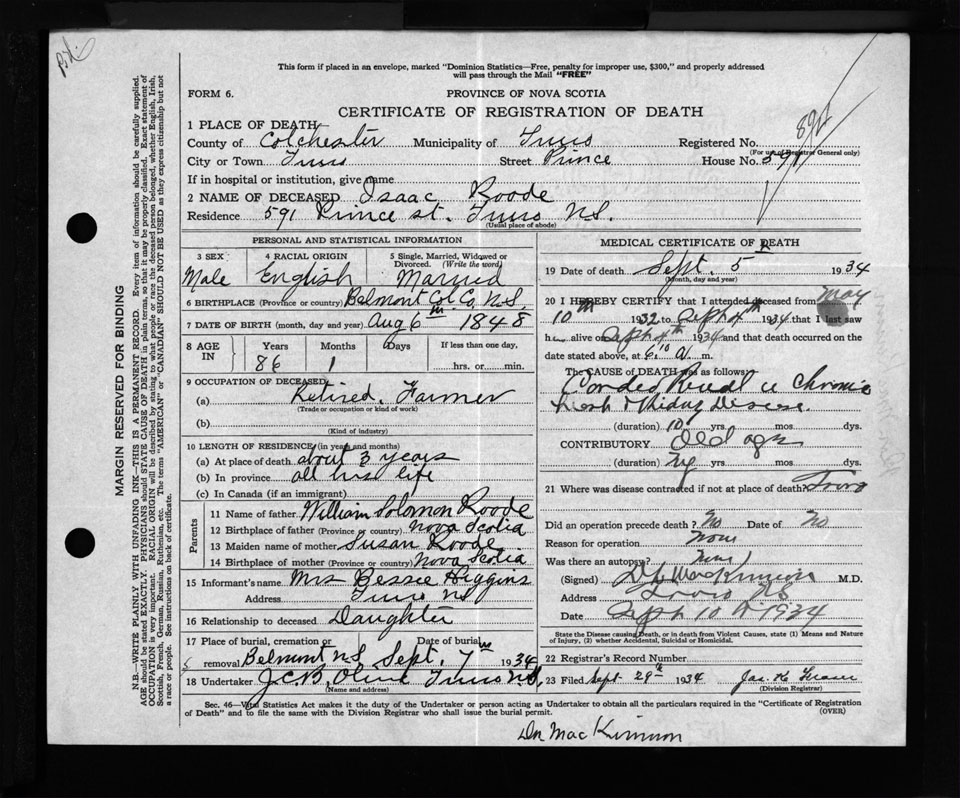 This form if placed in an envelope, marked "Dominion Statistics—Free, penalty for improper use, $300," and properly addressed
will pass through the Mail "FREE"
FORM 6.
PROVINCE OF NOVA SCOTIA
CERTIFICATE OF REGISTRATION OF DEATH
1 PLACE OF DEATH
County of Colchester Municipality of Truro Registered No. 891
(For use of Registrar General only)
City or Town Truro Street Prince House No. 591
If in hospital or institution, give name
2 NAME OF DECEASED Isaac Roode
Residence 591 Prince st. Truro N.S.
(Usual place of abode)
PERSONAL AND STATISTICAL INFORMATION
3 SEX 4 RACIAL ORIGIN 5 Single, Married, Widowed or Divorced. (Write the word)
Male English Married
6 BIRTHPLACE (Province or country) Belmont Col. Co. N.S.
7 DATE OF BIRTH (month, day and year) Aug 6th 1848
8 AGE IN Years Months Days If less than one day,
86 1 hrs. or min.
9 OCCUPATION OF DECEASED
(a) Retired Farmer
(Trade or occupation or kind of work)
(b)
(Kind of industry)
10 LENGTH OF RESIDENCE (in years and months)
(a) At place of death about 3 years
(b) In province all his life
(c) In Canada (if an immigrant)
Parents
11 Name of father William Solomon Roode
12 Birthplace of father (Province or country) Nova Scotia
13 Maiden name of mother Susan Roode
14 Birthplace of mother (Province or country) Nova Scotia
15 Informant's name Mrs Bessie Higgins
Address Truro N.S
16 Relationship to deceased Daughter
17 Place of burial, cremation or Date of burial
removal Belmont N.S Sept. 7th 1934
18 Undertaker J.C.B. Truro N.S.
(Name and address)
MEDICAL CERTIFICATE OF DEATH
19 Date of death Sept. 5th 1934
(Month, day and year)
20 I HEREBY CERTIFY that I attended deceased from May
10th 1932 to Sept 4th 1934 that I last saw
him alive on Sept 4th 1934 and that death occurred on the
date stated above, at 6 a. m.
The CAUSE of DEATH was as follows:
Cardio Renal ie Chronic
Heart & Kidney Disease.
(duration) 10 yrs. mos. dys.
CONTRIBUTORY Old age
(duration) yrs. mos. dys.
21 Where was disease contracted if not at place of death? Truro
Did an operation precede death? No Date of No
Reason for operation None
Was there an autopsy? None
(Signed) MacKinnon M.D.
Address Truro NS
Date Sept 10th 1934
State the Disease causing Death, or in death from Violent Causes, state (1) Means and Nature
of Injury, (2) whether Accidental, Suicidal or Homicidal.
22 Registrar's Record Number
23 Filed Sept 29th 1934 Jas. K.
(Division Registrar)
Sec. 46—Vital Statistics Act makes it the duty of the Undertaker or person acting as Undertaker to obtain all the particulars required in the "Certificate of Registration
of Death" and to file the same with the Division Registrar who shall issue the burial permit. (OVER)
Dr MacKinnon
MARGIN RESERVED FOR BINDING
N.B.—WRITE PLAINLY WITH UNFADING INK—THIS IS A PERMANENT RECORD. Every item of information should be carefully supplied.
AGE should be stated EXACTLY. PHYSICIANS should STATE CAUSE OF DEATH in plain terms, so that it may be properly classified. Exact statement of
OCCUPATION is very important. RACIAL ORIGIN will be described by stating to what people or race the deceased person belonged, whether English, Irish,
Scottish, French, German, Russian, Ruthenian, etc. The terms "AMERICAN" or "CANADIAN" SHOULD NOT BE USED as they express citizenship but not
a race or people. See instructions on back of certificate.